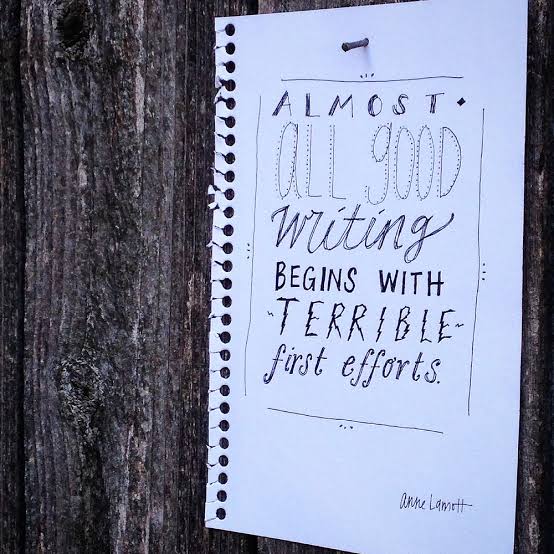 ALMOST
all good
writing
BEGINS WITH
~TERRIBLE~
first efforts.
anne Lamott